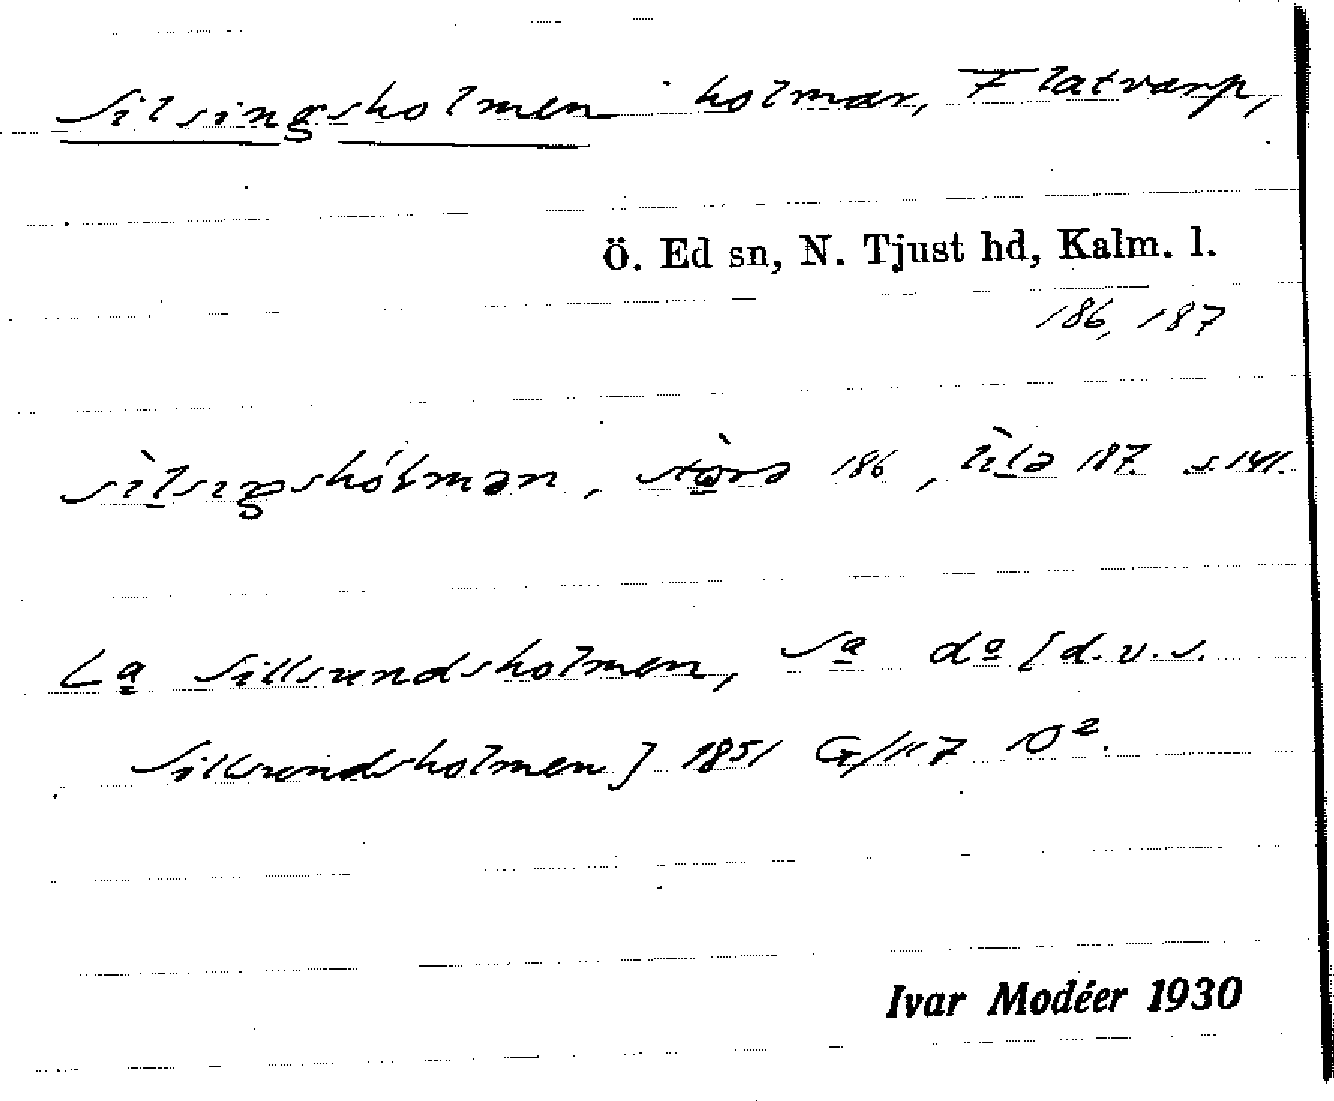 Silsingsholmen holmar, Flatvarp,
Ö. Ed sn, N. Tjust hd, Kalm. l.
186, 187
sìlsiŋshólmən, stòrə 186, lìlə 187. s. 141.
La Sillsundsholmen, Sa do [d.v.s.
Sillsundsholmen] 1851 G/117 10².
Ivar Modéer 1930